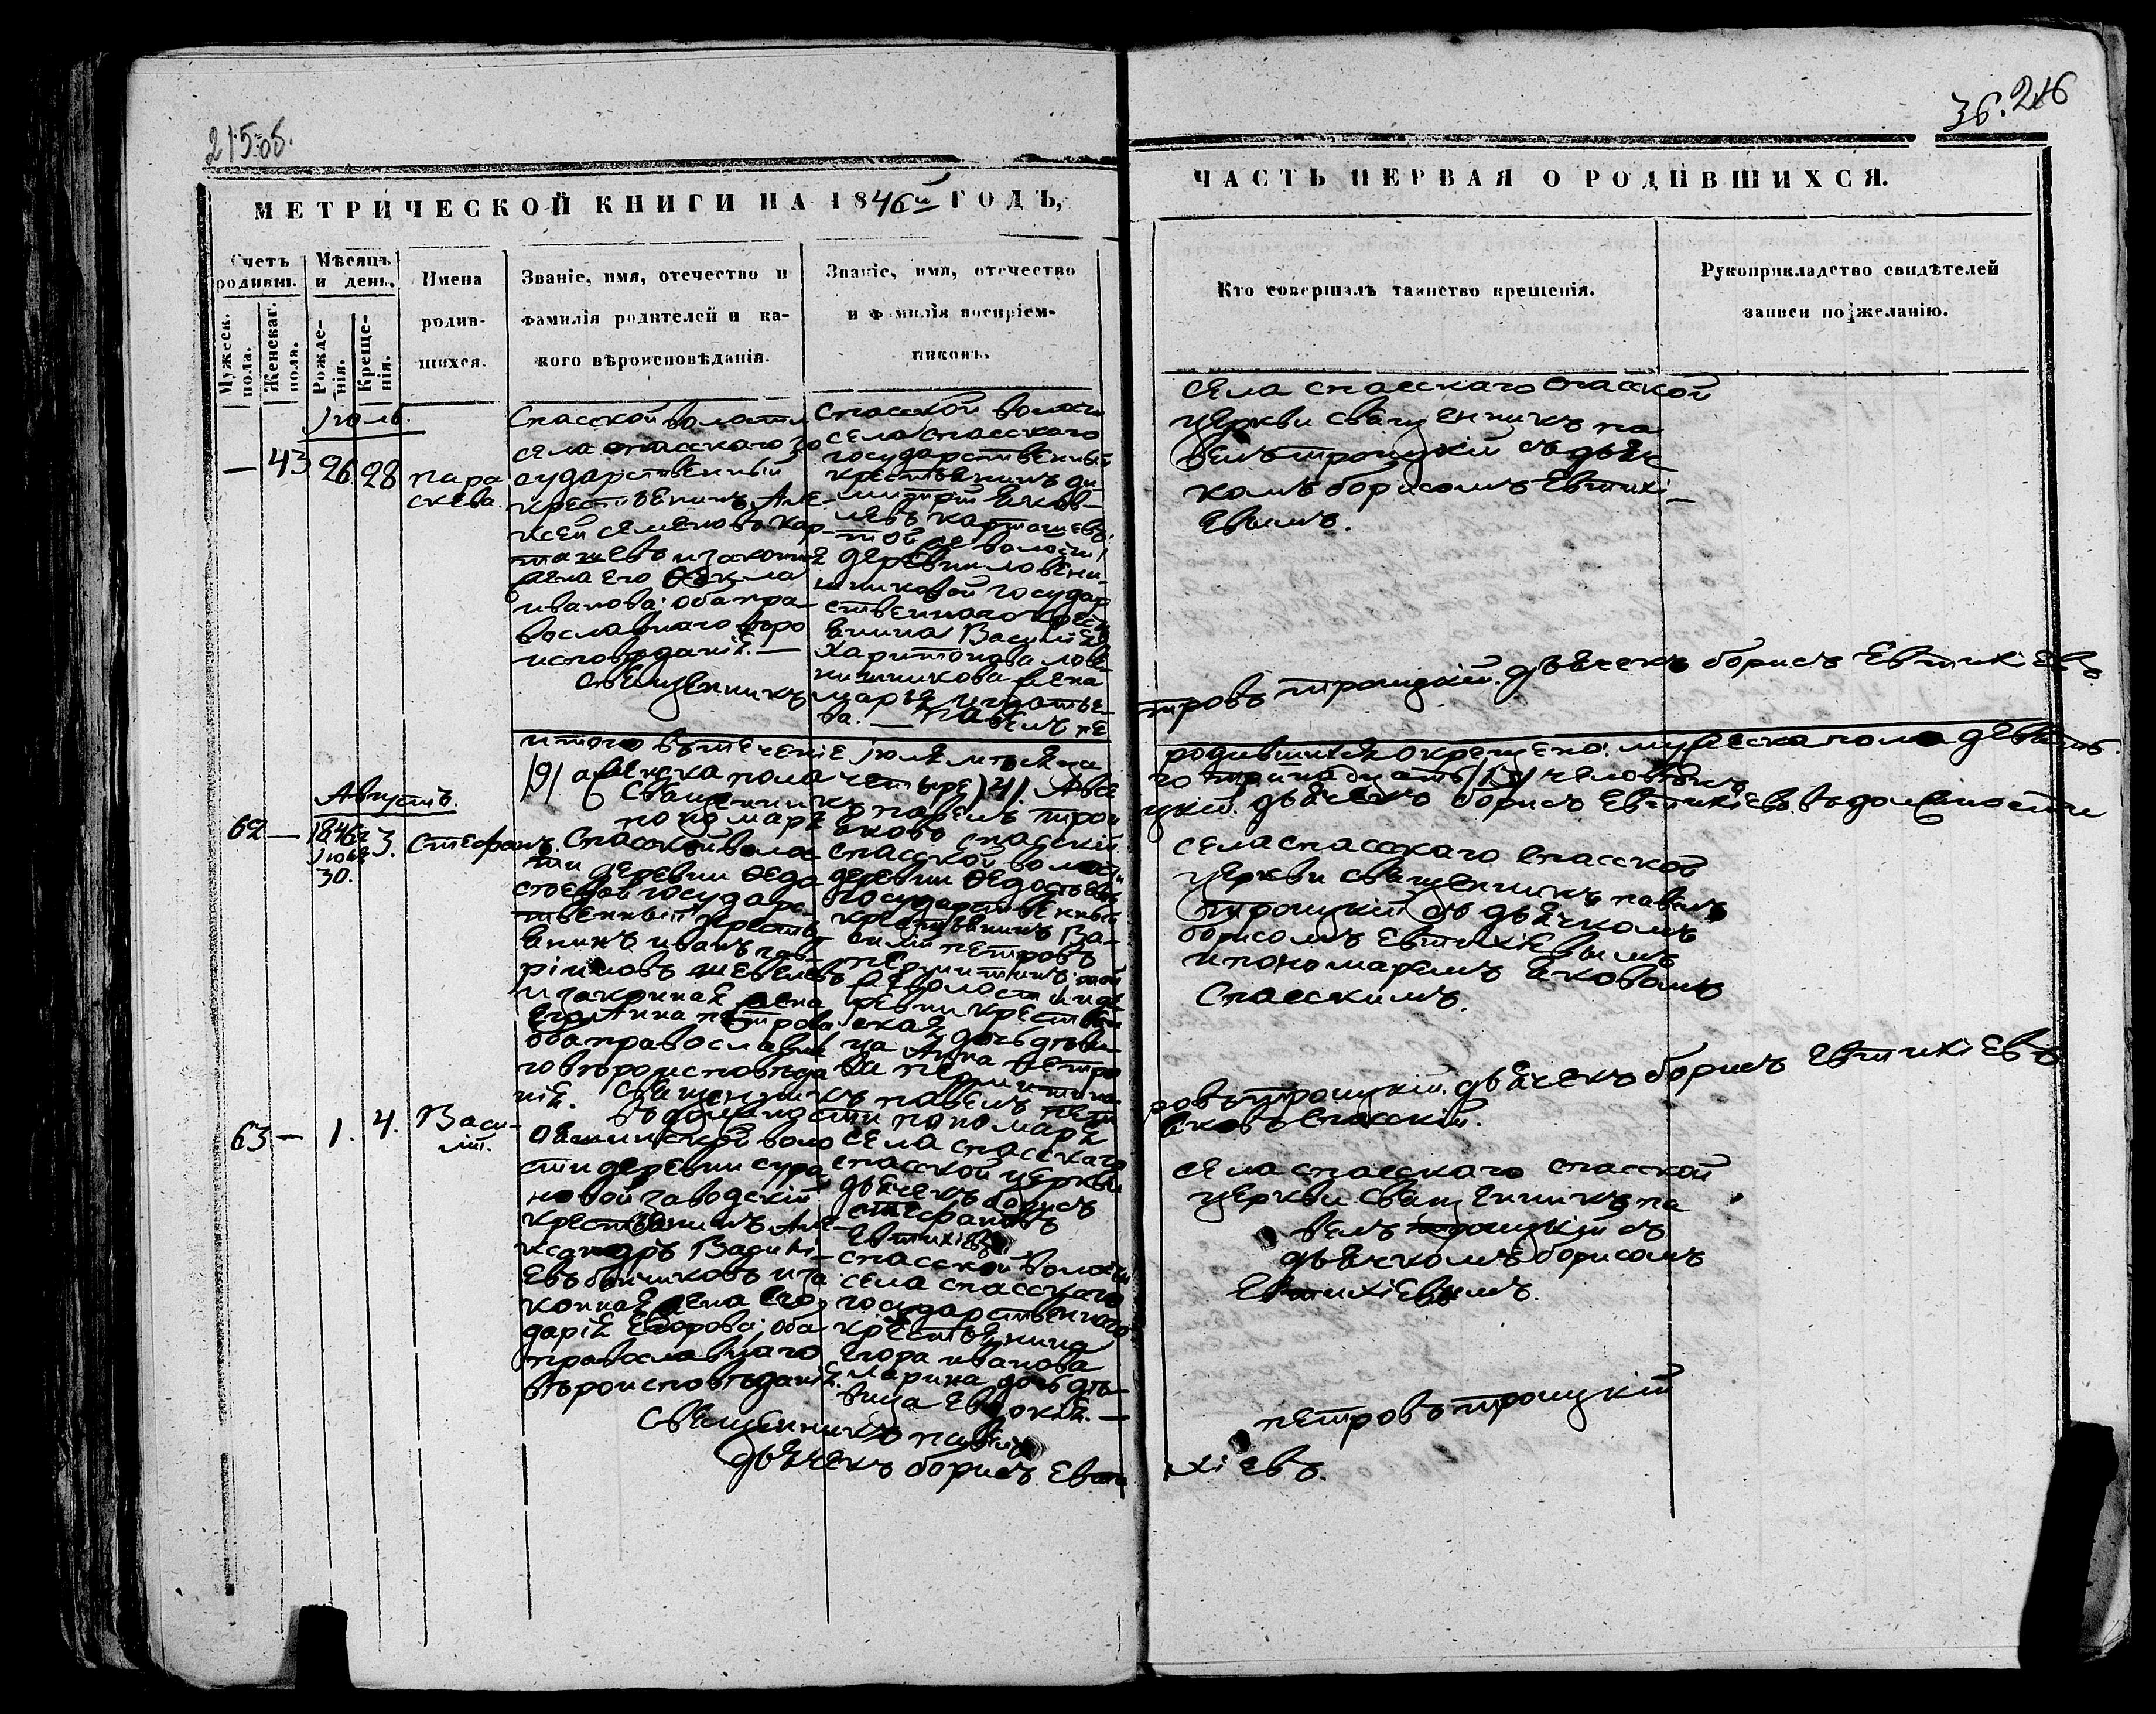 215 об.
36. 216
МЕТРИЧЕСКОЙ КНИГИ НА 1846й ГОДЪ,
ЧАСТЬ ПЕРВАЯ О РОДИВШИХСЯ.
Счетъ родивш.
Мужеск. пола.
Женскаг. пола.
Мѣсяцъ и день.
Рожде-нія.
Креще-нія.
Имена
родив-
шихся.
Званіе, имя, отечество и
фамилія родителей и ка-
кого вѣроисповѣданія.
Званіе, имя, отечество
и фамилія воспріем-
никовъ.
Кто совершалъ таинство крещенія.
Рукоприкладство свидѣтелей
записи по желанію.
Іюль.
— 43 26. 28
пара
скева.
Спасской волости
села спасскаго го
сударственный
крестьенинъ Але-
ксей семеновъ кар-
ташевъ и законная
жена его Ѳекла
иванова: оба пра-
вославнаго вѣро
исповѣданія. —
Спасской волости
села спасскаго
государственный
крестьянинъ ди-
митрій яков-
левъ карташевъ:
той же волости
деревни
государ
ственнаго крест
янина Василья
харитонова
жена
марья игнатье-
ва. —
села спасскаго спасской
церкви священникъ па
велъ троицкій съ дьяч
комъ борисомъ Евтихі-
евымъ.
Священникъ павелъ пе
тровъ троицкій. дьячекъ борисъ Евтихіевъ.
итого въ теченіе іюля мѣсяца родившихся окрещено: мужеска пола девять
/9/ а женска пола четыре /4/ Все го тринадцать /13/ человѣкъ
Священникъ павелъ трои цкій. дьячекъ борисъ Евтихіевъ. въ должности
пономаря яковъ спасскій.
Августъ.
62 — 1846 г. Іюля 30. 3.
Стефанъ.
Спасской волос
ти деревни Ѳедо
сѣевой государс
твенный кресть
янинъ иванъ гав-
ріиловъ шевелевъ
и законная жена
его Анна петрова:
оба православна
го вѣроисповѣда
нія.
спасской волости
деревни Ѳедосѣевой
государственный
крестьянинъ Ва-
силій петровъ
той
же волости и де
ревни крестьян
ская дочь дѣви-
ца Анна петро
ва
села спасскаго спасской
церкви священникъ павелъ
троицкій съ дьячкомъ
борисомъ Евтихіевымъ
и пономаремъ яковомъ
Спасскимъ.
Священникъ павелъ пет ровъ троицкій. дьячекъ борисъ Евтихіевъ
въ должности пономаря яковъ спасскій.
63 — 1. 4.
Васи-
лій.
воло
сти деревни сура
новой заводскій
крестьянинъ Але-
ксандръ Василі-
евъ бычковъ и за
конная жена его
дарія Егорова: оба
православнаго
вѣроисповѣданія.
села спасскаго
спасской церкви
дьячекъ борисъ
стефановъ
Евтихіевъ
спасской волости
села спасскаго
государственнаго
крестьянина
Егора иванова
марина дочь дѣ-
вица Евдокія. —
села спасскаго спасской
церкви священникъ па
велъ троицкій съ
дьячкомъ борисомъ
Евтихіевымъ.
Священникъ павелъ петровъ троицкій
дьячекъ борисъ Евти хіевъ.